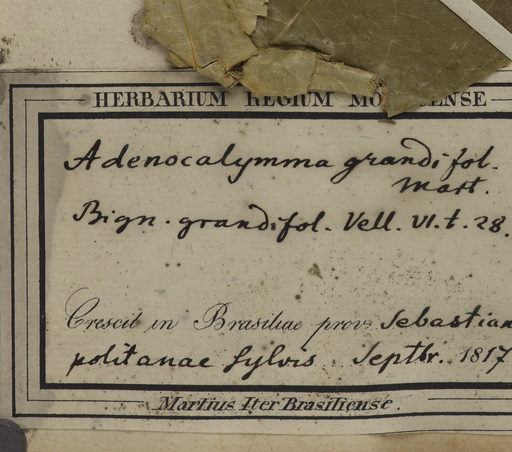 HERBARIUM REGIUM MO ENSE
Adenocalymma grandifol.
Mart.
Bign. grandifol. Vell. VI. t. 28.
Crescit in Brasiliae prov. Sebastian
politanae sylvis. Septbr. 1817
Martius Iter Brasiliense.